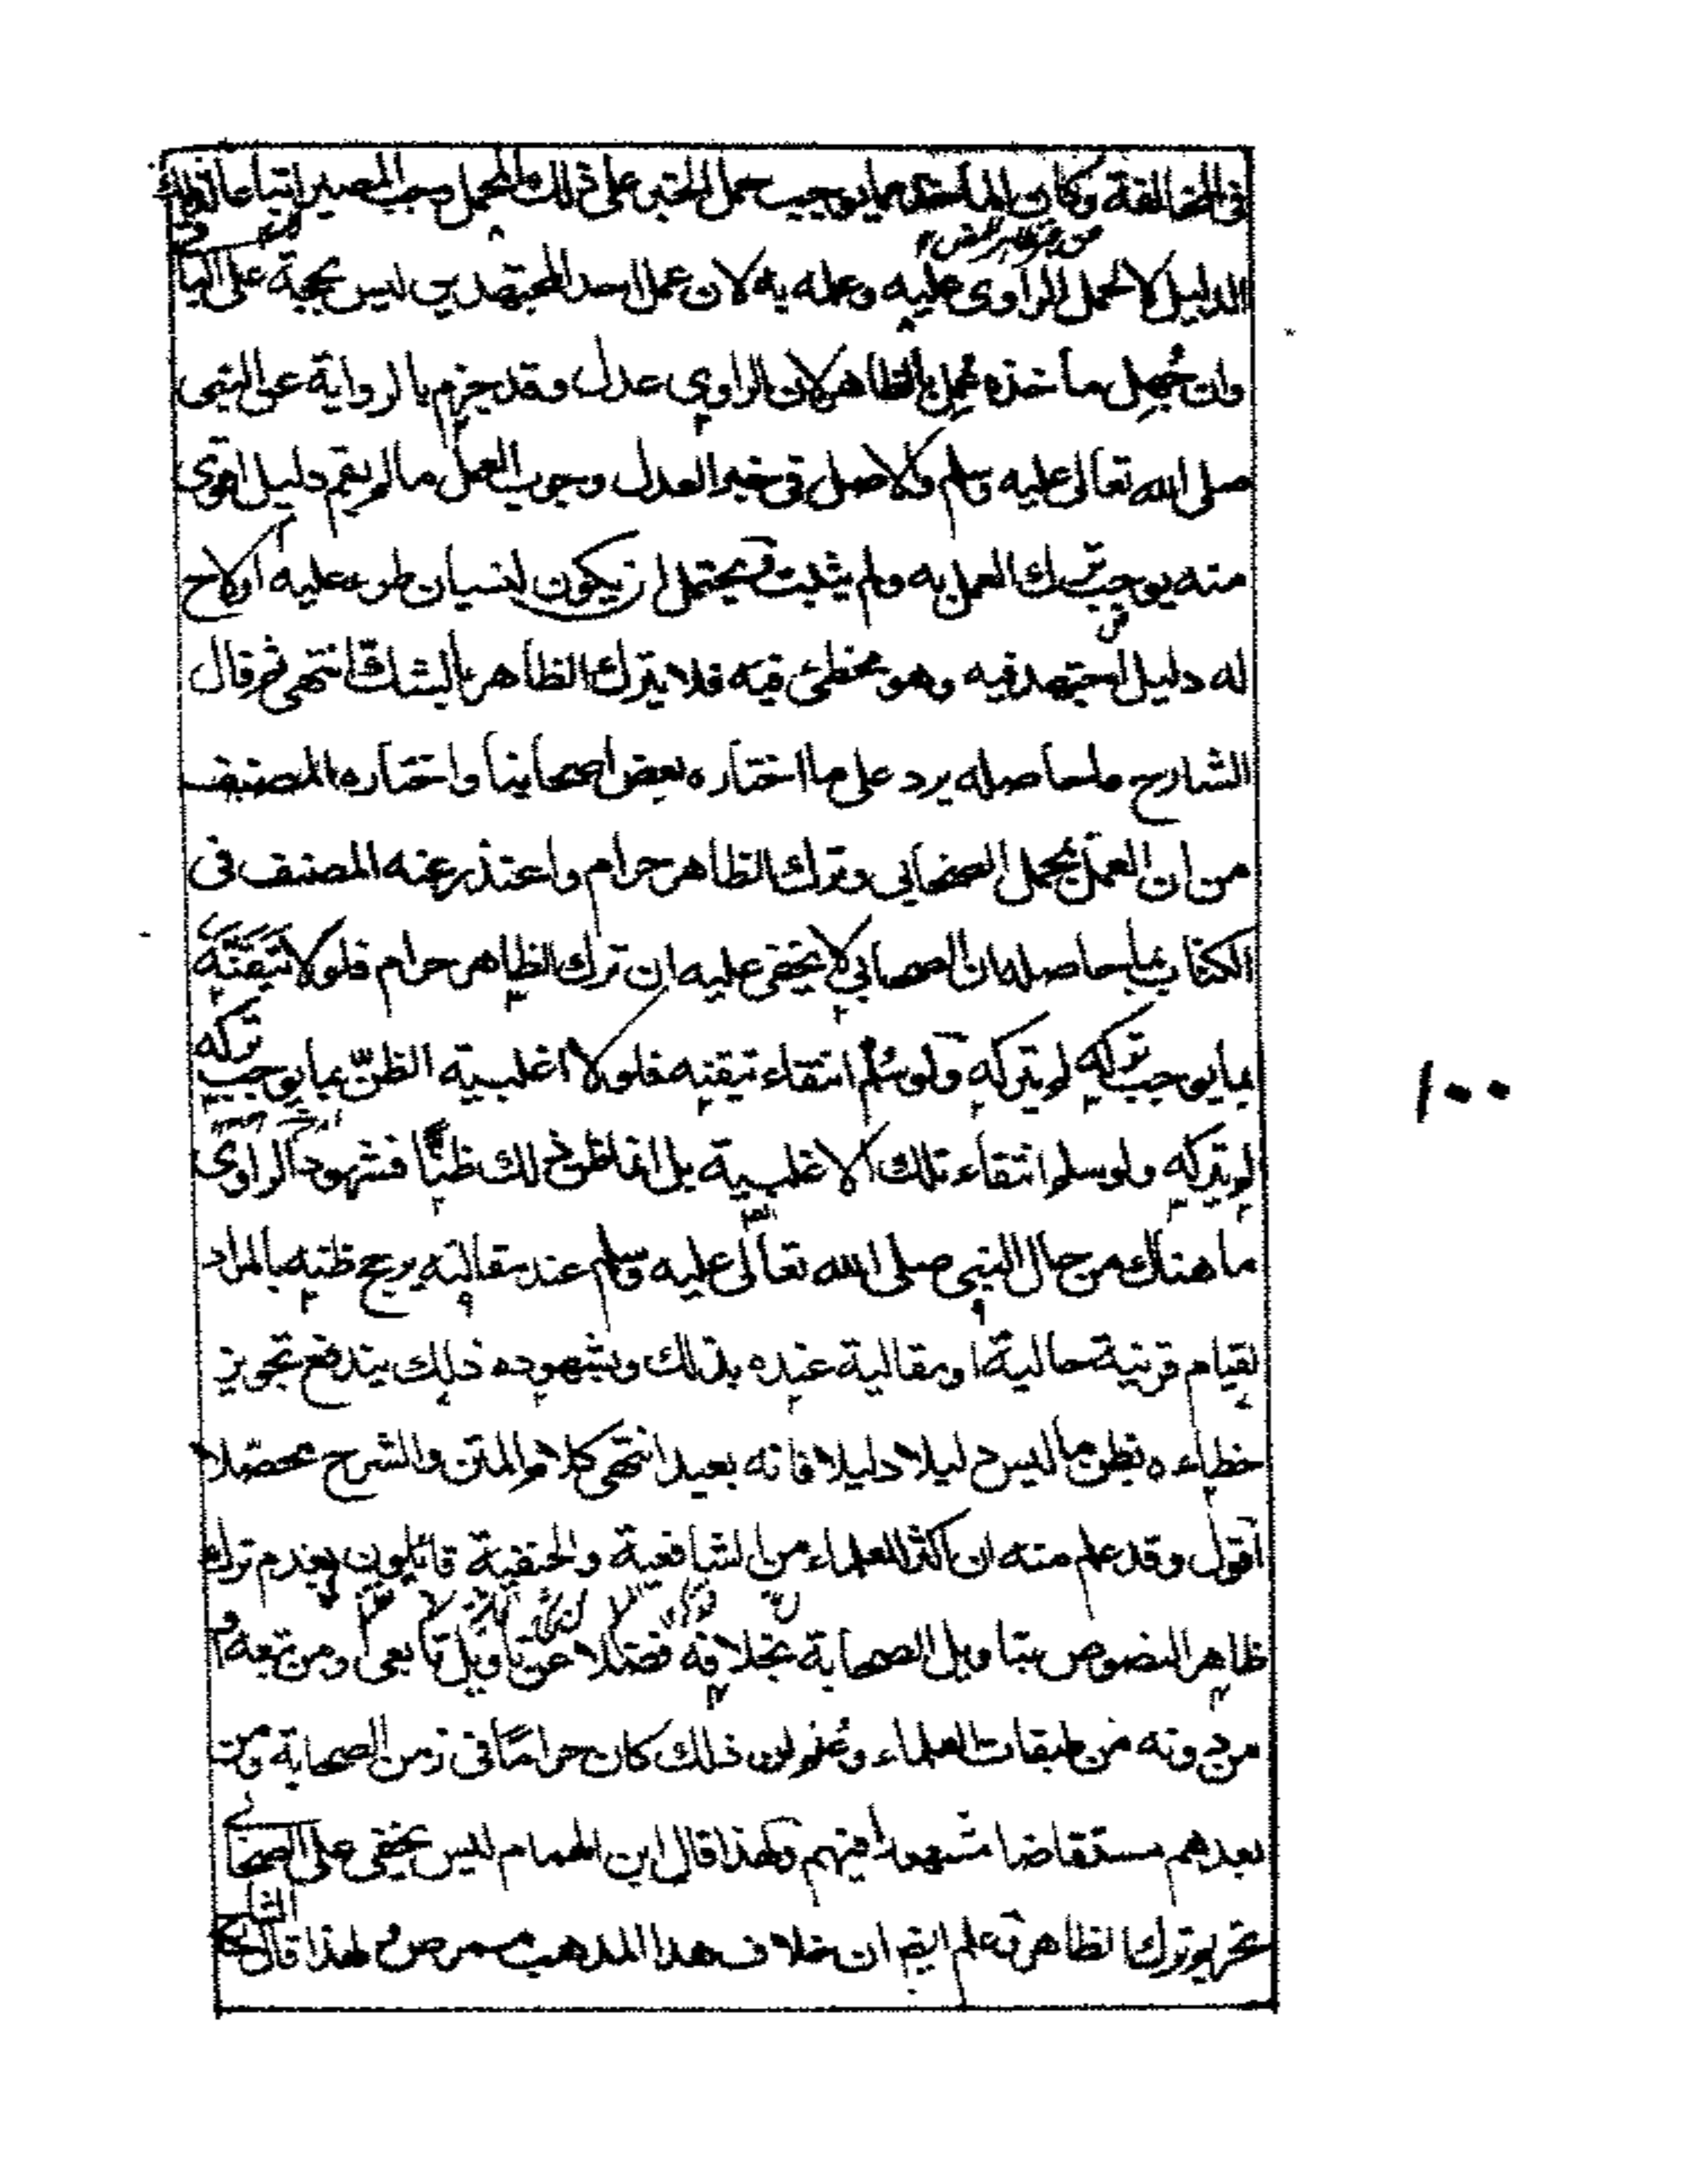 في المخالفة وكان المأخذ مما يوجب حمل الخبر على ذلك المحمل وجب المصير اتباعا لذلك
الدليل لا لحمل الراوي عليه وعمله به لان عمل احد المجتهدين ليس بحجة على
وان جُهِل مأخذه عُمِل بالظاهر لان الراوي عدل وقد جزم بالرواية عن النبي
صلى الله تعالى عليه وسلم والاصل في خبر العدل وجوب العمل ما لم يقم دليل اقوى
منه يوجب ترك العمل به ولم يثبت ويحتمل ان يكون لنسيان طرء عليه او لاح
له دليل اجتهد فيه وهو مخطئ فيه فلا يترك الظاهر بالشك انتهى ثم قال
الشارح ما حاصله يرد على ما اختاره بعض اصحابنا واختاره المصنف
من ان العمل بحمل الصحابي وترك الظاهر حرام واعتذر عنه المصنف في
الكتاب بما حاصله ان الصحابي لا يخفى عليه ان ترك الظاهر حرام فلولا تيقنه
بما يوجب تركه لم يتركه ولو سُلم انتفاء تيقنه فلولا اغلبية الظنّ بما يوجب تركه
لم يتركه ولو سلم انتفاء تلك الاغلبية بل انما ظن ذلك ظنًّا فشهود الراوي
ما هناك من حال النبي صلى الله تعالى عليه وسلم عند مقالته يرجح ظنه بالمراد
لقيام قرينة حالية او مقالية عنده بذلك وبشهوده ذلك يندفع تجويز
خطاءه بظن ما ليس دليلا دليلا فانه بعيد انتهى كلام المتن والشرح محصّلا
اقول وقد علم منه ان اكثر العلماء من الشافعية والحنفية قايلون بعدم ترك
ظاهر النصوص بتاويل الصحابة بخلافه فضلا عن تاويل تابعي ومن تبعه
من دونه من طبقات العلماء وعُلم ان ذلك كان حراما في زمن الصحابة ومن
بعدهم مستفاضا مشهورا فيهم ولهذا قال ابن الهمام ليس يخفى على الصحابي
تحريم ترك الظاهر وعلم ان خلاف هذا المذهب لهذا قال الشارح
١٠٠